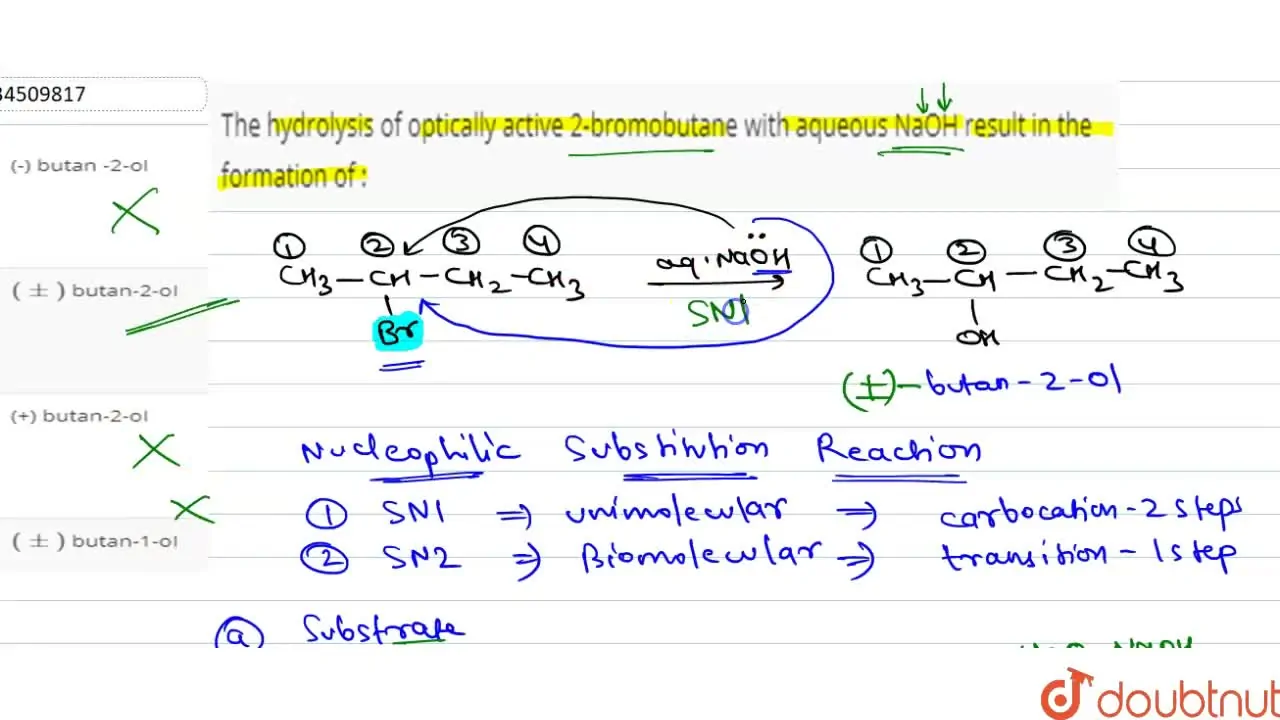 34509817
The hydrolysis of optically active 2-bromobutane with aqueous NaOH result in the
formation of :
(-) butan -2-ol
(±) butan-2-ol
(+) butan-2-ol
(±) butan-1-ol
① ② ③ ④
CH3 – CH – CH2 – CH3
Br
aq. NaOH
SN1
① ② ③ ④
CH3 – CH – CH2 – CH3
OH
(±) – butan – 2 – ol
Nucleophilic Substitution Reaction
① SN1 ⇒ unimolecular ⇒ carbocation – 2 steps
② SN2 ⇒ Biomolecular ⇒ transition – 1 step
ⓐ Substrate
doubtnut